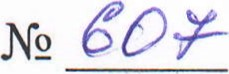 № 607